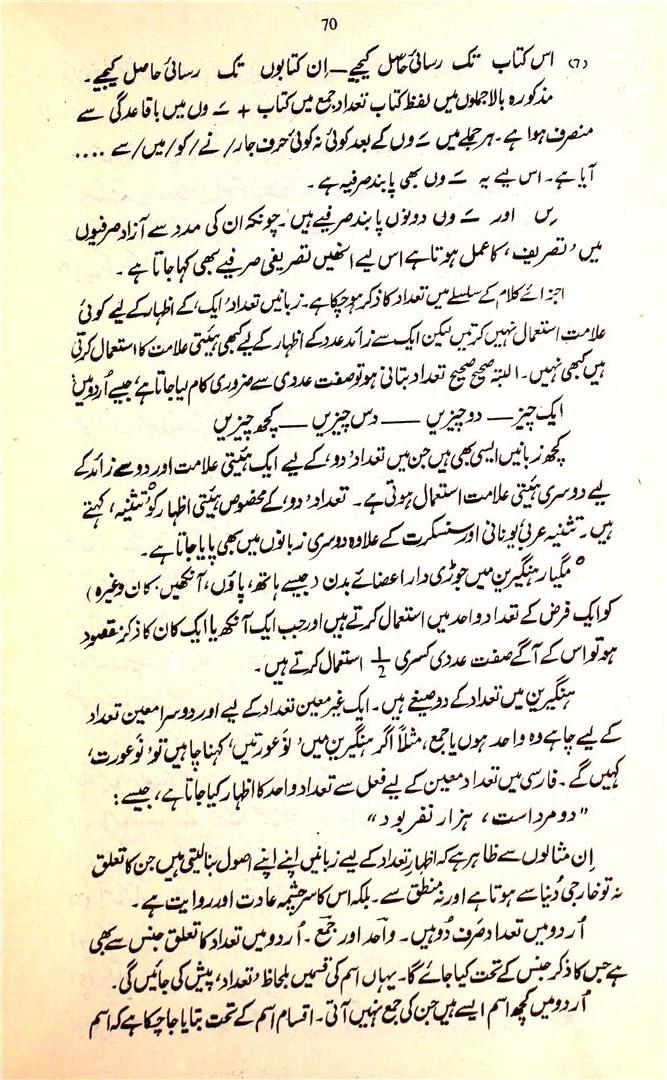 70
(7) اس کتاب تک رسائی حاصل کیجیے — اِن کتابوں تک رسائی حاصل کیجیے۔
مذکورہ بالا جملوں میں لفظ کتاب تعداد جمع میں کتاب + ے وں میں باقاعدگی سے
منصرف ہوا ہے۔ ہر جملے میں ے وں کے بعد کوئی نہ کوئی حرف جار / نے / کو / میں / سے ....
آیا ہے۔ اس لیے یہ ے وں بھی پابند صرفیہ ہے۔
یں اور ے وں دونوں پابند صرفیے ہیں۔ چونکہ ان کی مدد سے آزاد صرفیوں
میں 'تصریف' کا عمل ہوتا ہے اس لیے انھیں تصریفی صرفیے بھی کہا جاتا ہے۔
اجزائے کلام کے سلسلے میں تعداد کا ذکر ہو چکا ہے۔ زبانیں تعداد 'ایک' کے اظہار کے لیے کوئی
علامت استعمال نہیں کرتیں لیکن ایک سے زائد عدد کے اظہار کے لیے کبھی ہیئتی علامت کا استعمال کرتی
ہیں کبھی نہیں۔ البتہ صحیح صحیح تعداد بتانی ہو تو صفت عددی سے ضروری کام لیا جاتا ہے، جیسے اُردو میں
ایک چیز — دو چیزیں — دس چیزیں — کچھ چیزیں
کچھ زبانیں ایسی بھی ہیں جن میں تعداد 'دو' کے لیے ایک ہیئتی علامت اور دو سے زائد کے
لیے دوسری ہیئتی علامت استعمال ہوتی ہے۔ تعداد 'دو' کے مخصوص ہیئتی اظہار کو 'تثنیہ' کہتے
ہیں۔ تثنیہ عربی یونانی اور سنسکرت کے علاوہ دوسری زبانوں میں بھی پایا جاتا ہے۔
°مگیار ہنگیرین میں جوڑی دار اعضائے بدن (جیسے ہاتھ، پاؤں، آنکھیں، کان وغیرہ)
کو ایک فرض کر کے تعداد واحد میں استعمال کرتے ہیں اور جب ایک آنکھ یا ایک کان کا ذکر مقصود
ہو تو اس کے آگے صفت عددی کسری ½ استعمال کرتے ہیں۔
ہنگیرین میں تعداد کے دو صیغے ہیں۔ ایک غیر معین تعداد کے لیے اور دوسرا معین تعداد
کے لیے چاہے وہ واحد ہوں یا جمع، مثلاً اگر ہنگیرین میں 'نَو عورتیں' کہنا چاہیں تو 'نَو عورت'
کہیں گے۔ فارسی میں تعداد معین کے لیے فعل سے تعداد واحد کا اظہار کیا جاتا ہے، جیسے:
"دو مرد است، ہزار نفر بود"
اِن مثالوں سے ظاہر ہے کہ اظہارِ تعداد کے لیے زبانیں اپنے اپنے اصول بنا لیتی ہیں جن کا تعلق
نہ تو خارجی دُنیا سے ہوتا ہے اور نہ منطق سے۔ بلکہ اس کا سرچشمہ عادت اور روایت ہے۔
اُردو میں تعداد صَرف دُو ہیں۔ واحد اور جمع۔ اُردو میں تعداد کا تعلق جنس سے بھی
ہے جس کا ذکر جنس کے تحت کیا جائے گا۔ یہاں اسم کی قسمیں بلحاظ 'تعداد' پیش کی جائیں گی۔
اُردو میں کچھ اسم ایسے ہیں جن کی جمع نہیں آتی۔ اقسام اسم کے تحت بتایا جا چکا ہے کہ اسم